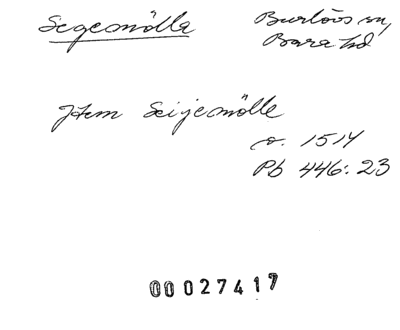 Segemölla
Burlövs sn,
Bara hd
Jtem Seijemölle
o. 1514
Pb 446: 23
00027417